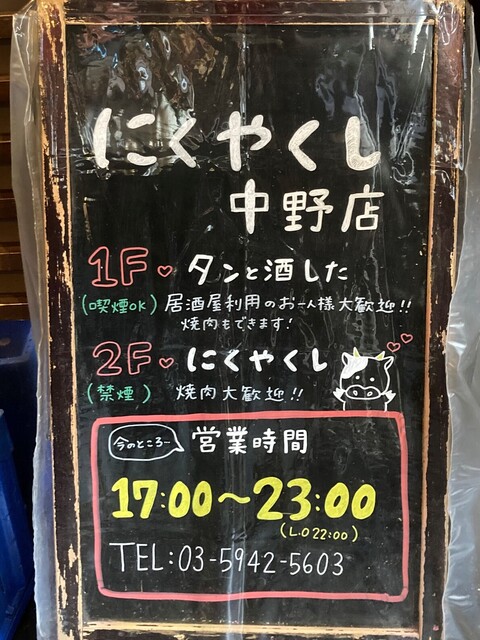 にくやくし
中野店
1F♡ タンと酒した
(喫煙OK) 居酒屋利用のお一人様大歓迎!!
焼肉もできます!
2F♡ にくやくし
(禁煙) 焼肉大歓迎!!
今のところー 営業時間
17:00〜23:00
(L.O 22:00)
TEL:03-5942-5603